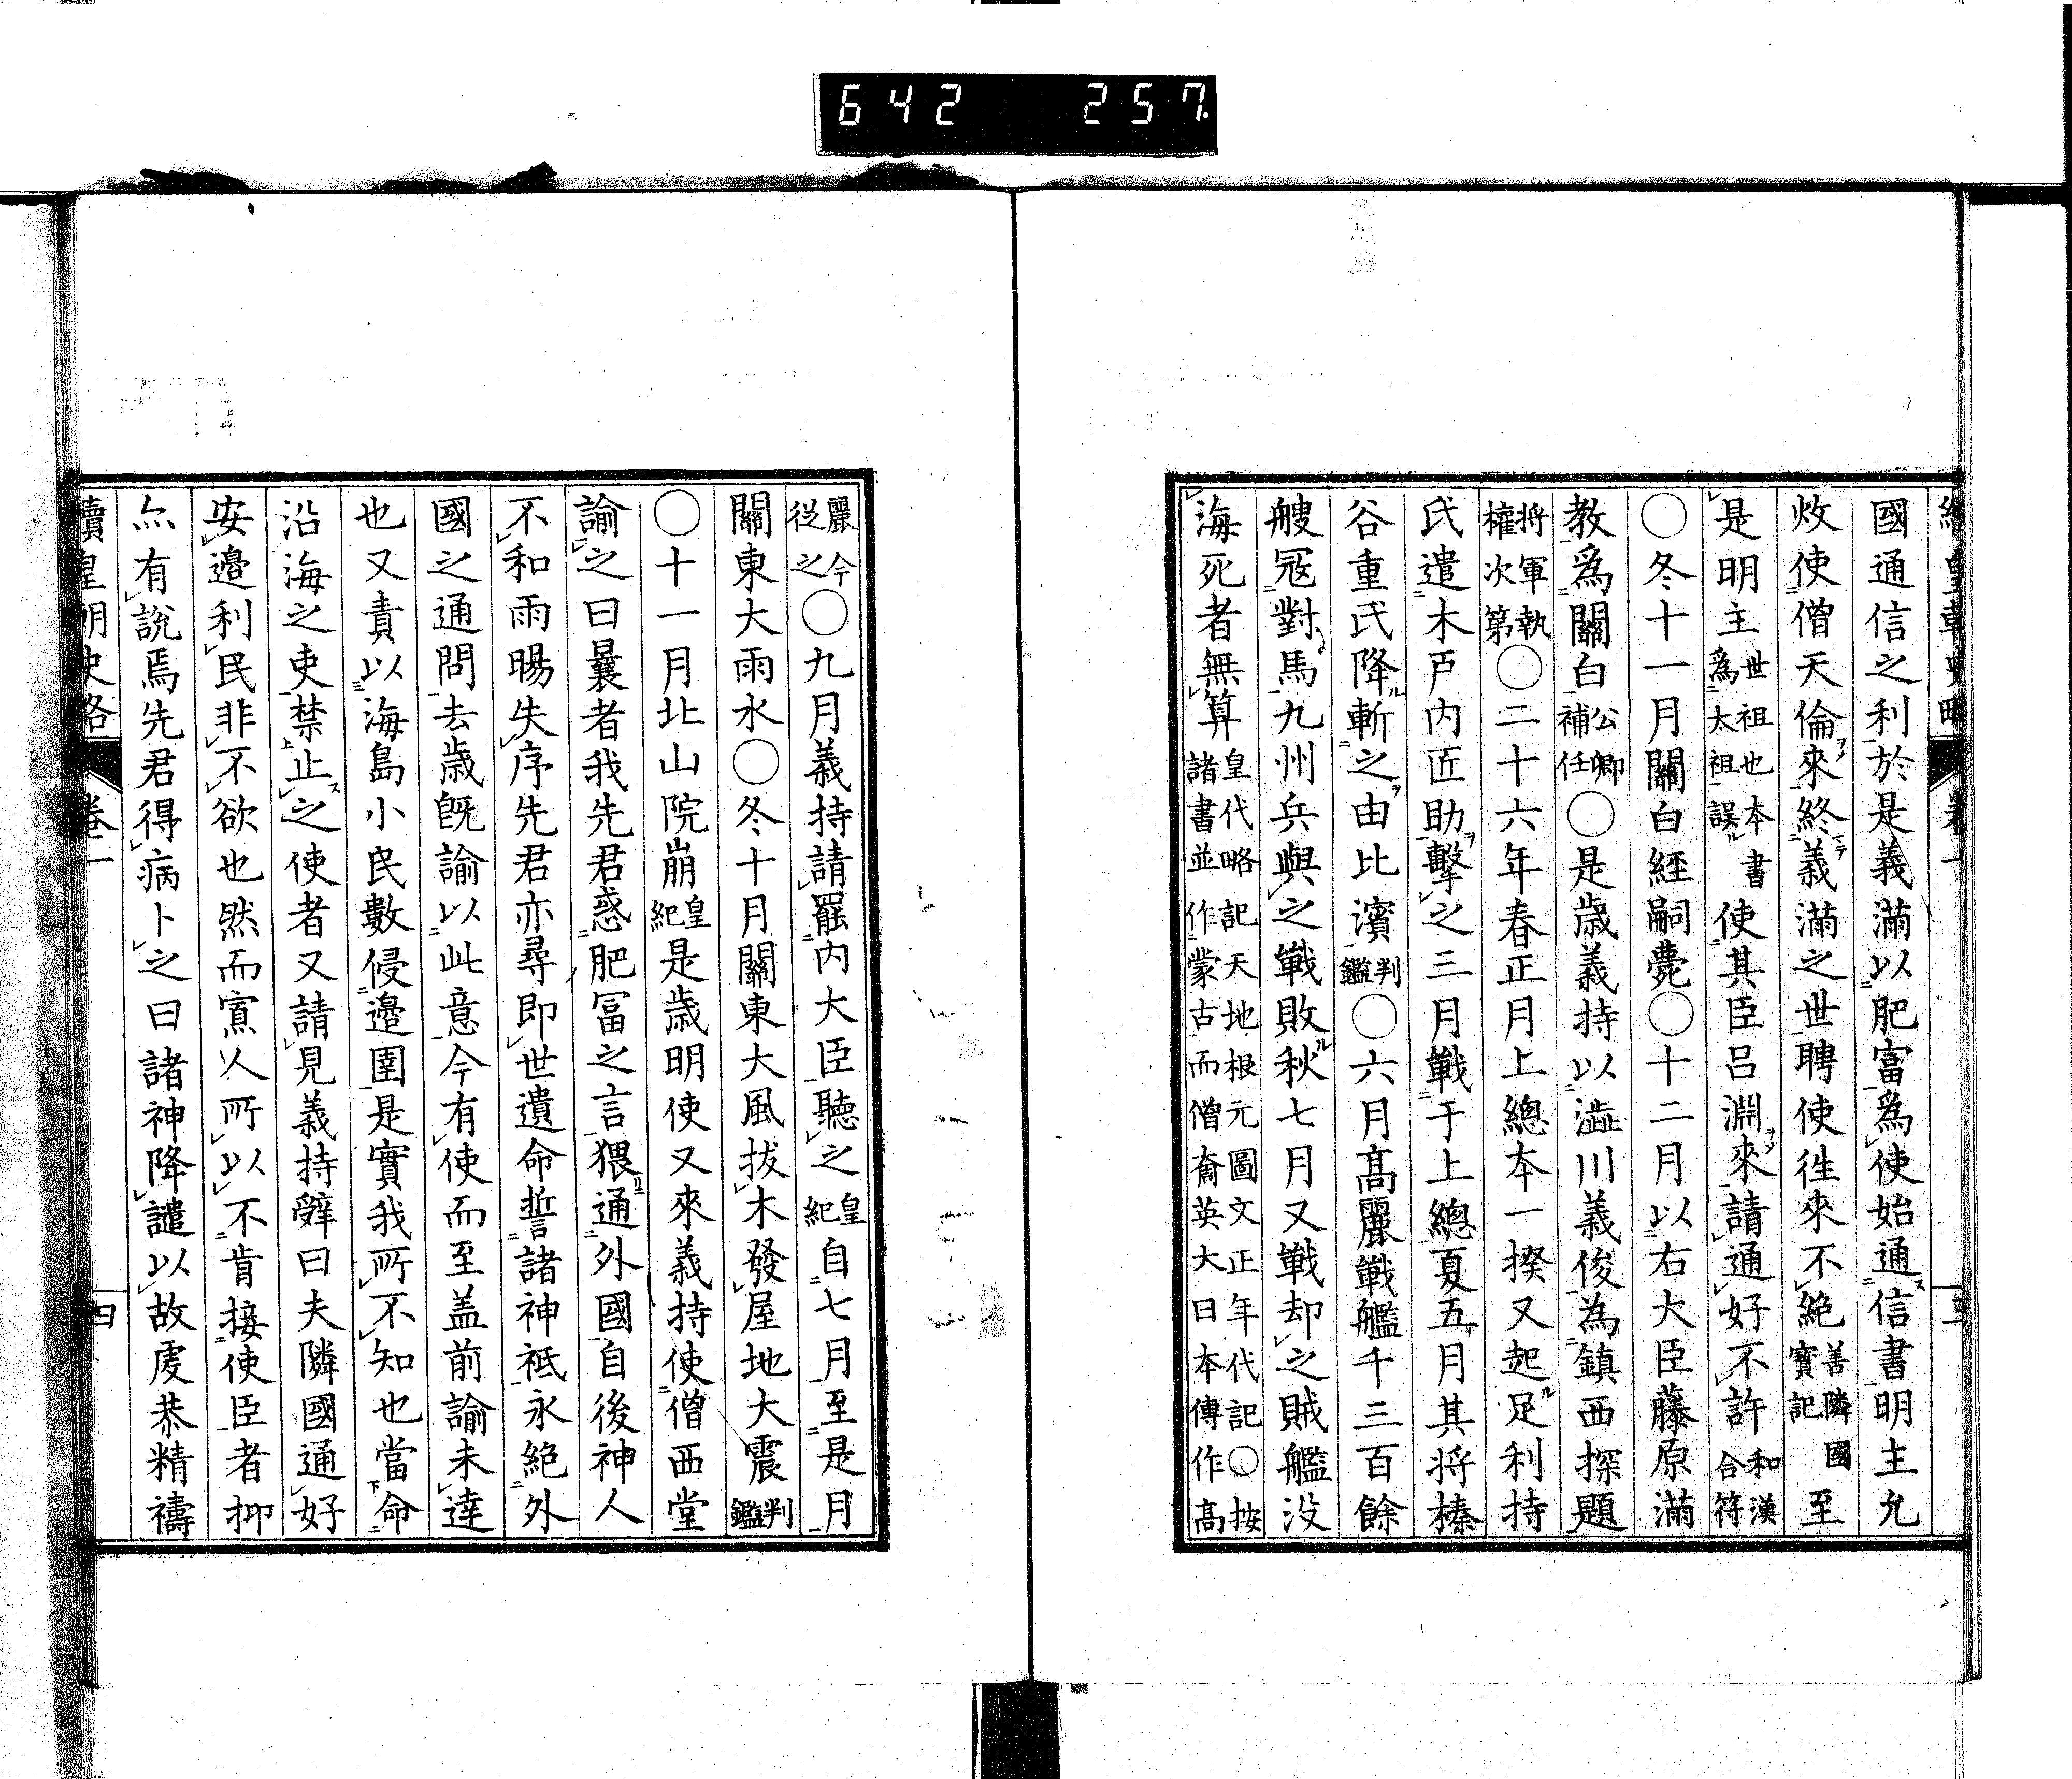 642 257
國通信之利於是義滿以肥富爲使始通信書明主允
炆使僧天倫來終義滿之世聘使徃來不絶善隣國寶記至
是明主世祖也本書爲太祖誤使其臣呂淵來請通好不許和漢合符
〇冬十一月關白經嗣薨〇十二月以右大臣藤原滿
教爲關白公卿補任〇是歳義持以澁川義俊為鎮西探題
將軍執權次第〇二十六年春正月上總本一揆又起足利持
氏遣木戸内匠助擊之三月戰于上總夏五月其将榛
谷重氏降斬之由比濱判鑑〇六月髙麗戰艦千三百餘
艘冦對馬九州兵與之戰敗秋七月又戰却之賊艦没
海死者無算皇代略記天地根元圖文正年代記〇按諸書並作蒙古而僧奝英大日本傳作髙
麗今従之〇九月義持請罷内大臣聽之皇紀自七月至是月
關東大雨水〇冬十月關東大風拔木發屋地大震判鑑
〇十一月北山院崩皇紀是歳明使又來義持使僧西堂
諭之曰曩者我先君惑肥冨之言猥通外國自後神人
不和雨暘失序先君亦尋即世遺命誓諸神祇永絶外
國之通問去歳既諭以此意今有使而至盖前諭未達
也又責以海島小民數侵邉圉是實我所不知也當命
沿海之吏禁止之使者又請見義持辤曰夫隣國通好
安邉利民非不欲也然而寡人所以不肯接使臣者抑
亦有說焉先君得病卜之曰諸神降譴以故䖏恭精禱
續皇朝史略 卷二 四